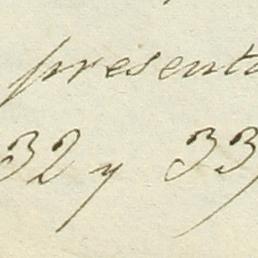 presenta
32 y 33